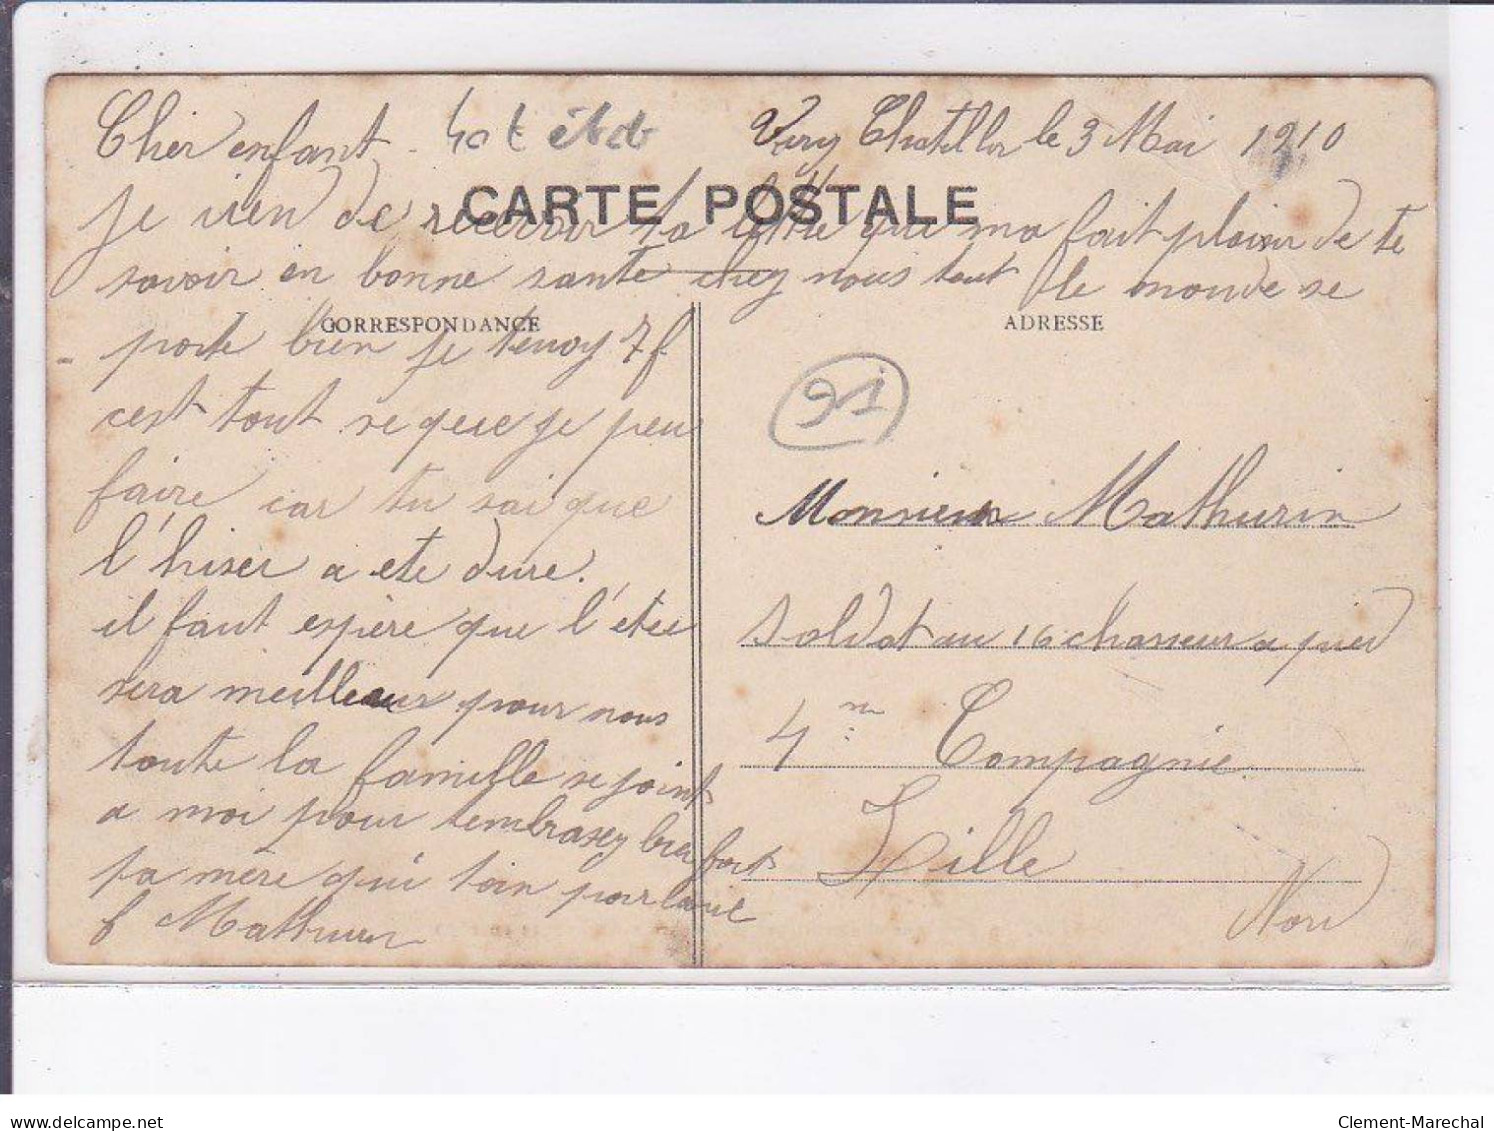 Cher enfant
Viry Chatillon le 3 Mai 1910
CARTE POSTALE
je vien de recevoir ta lettre qui ma fait plaisir de te
savoir en bonne sante chez nous tout le monde se
CORRESPONDANCE
ADRESSE
porte bien je tenvoy 7f
cest tout se que je peu
faire car tu sai que
l'hiser a ete dure.
il faut espère que l'étée
sera meilleur pour nous
toute la famille se joint
a moi pour tembrasez bien fort
ta mère qui toin pour la vie
f Mathurin
91
Monsieur Mathurin
soldat au 16 chasseur a pied
4me Compagnie
Lille
Nord
delcampe.net
Clement-Marechal